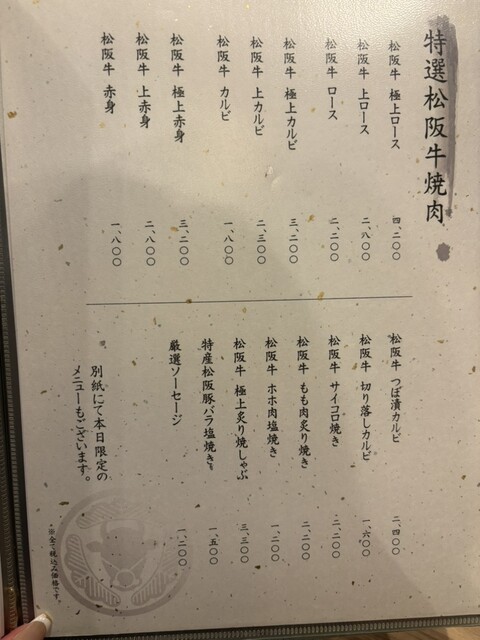 特選松阪牛焼肉
松阪牛 極上ロース 四、二〇〇
松阪牛 上ロース 二、八〇〇
松阪牛 ロース 二、二〇〇
松阪牛 極上カルビ 三、二〇〇
松阪牛 上カルビ 二、三〇〇
松阪牛 カルビ 一、八〇〇
松阪牛 極上赤身 三、二〇〇
松阪牛 上赤身 二、八〇〇
松阪牛 赤身 一、八〇〇
松阪牛 つぼ漬カルビ 二、四〇〇
松阪牛 切り落しカルビ 一、六〇〇
松阪牛 サイコロ焼き 二、二〇〇
松阪牛 もも肉炙り焼き 二、二〇〇
松阪牛 ホホ肉塩焼き 一、二〇〇
松阪牛 極上炙り焼しゃぶ 三、三〇〇
特産松阪豚バラ塩焼き 一、五〇〇
厳選ソーセージ 一、二〇〇
※ 別紙にて本日限定の
メニューもございます。
※全て税込み価格です。